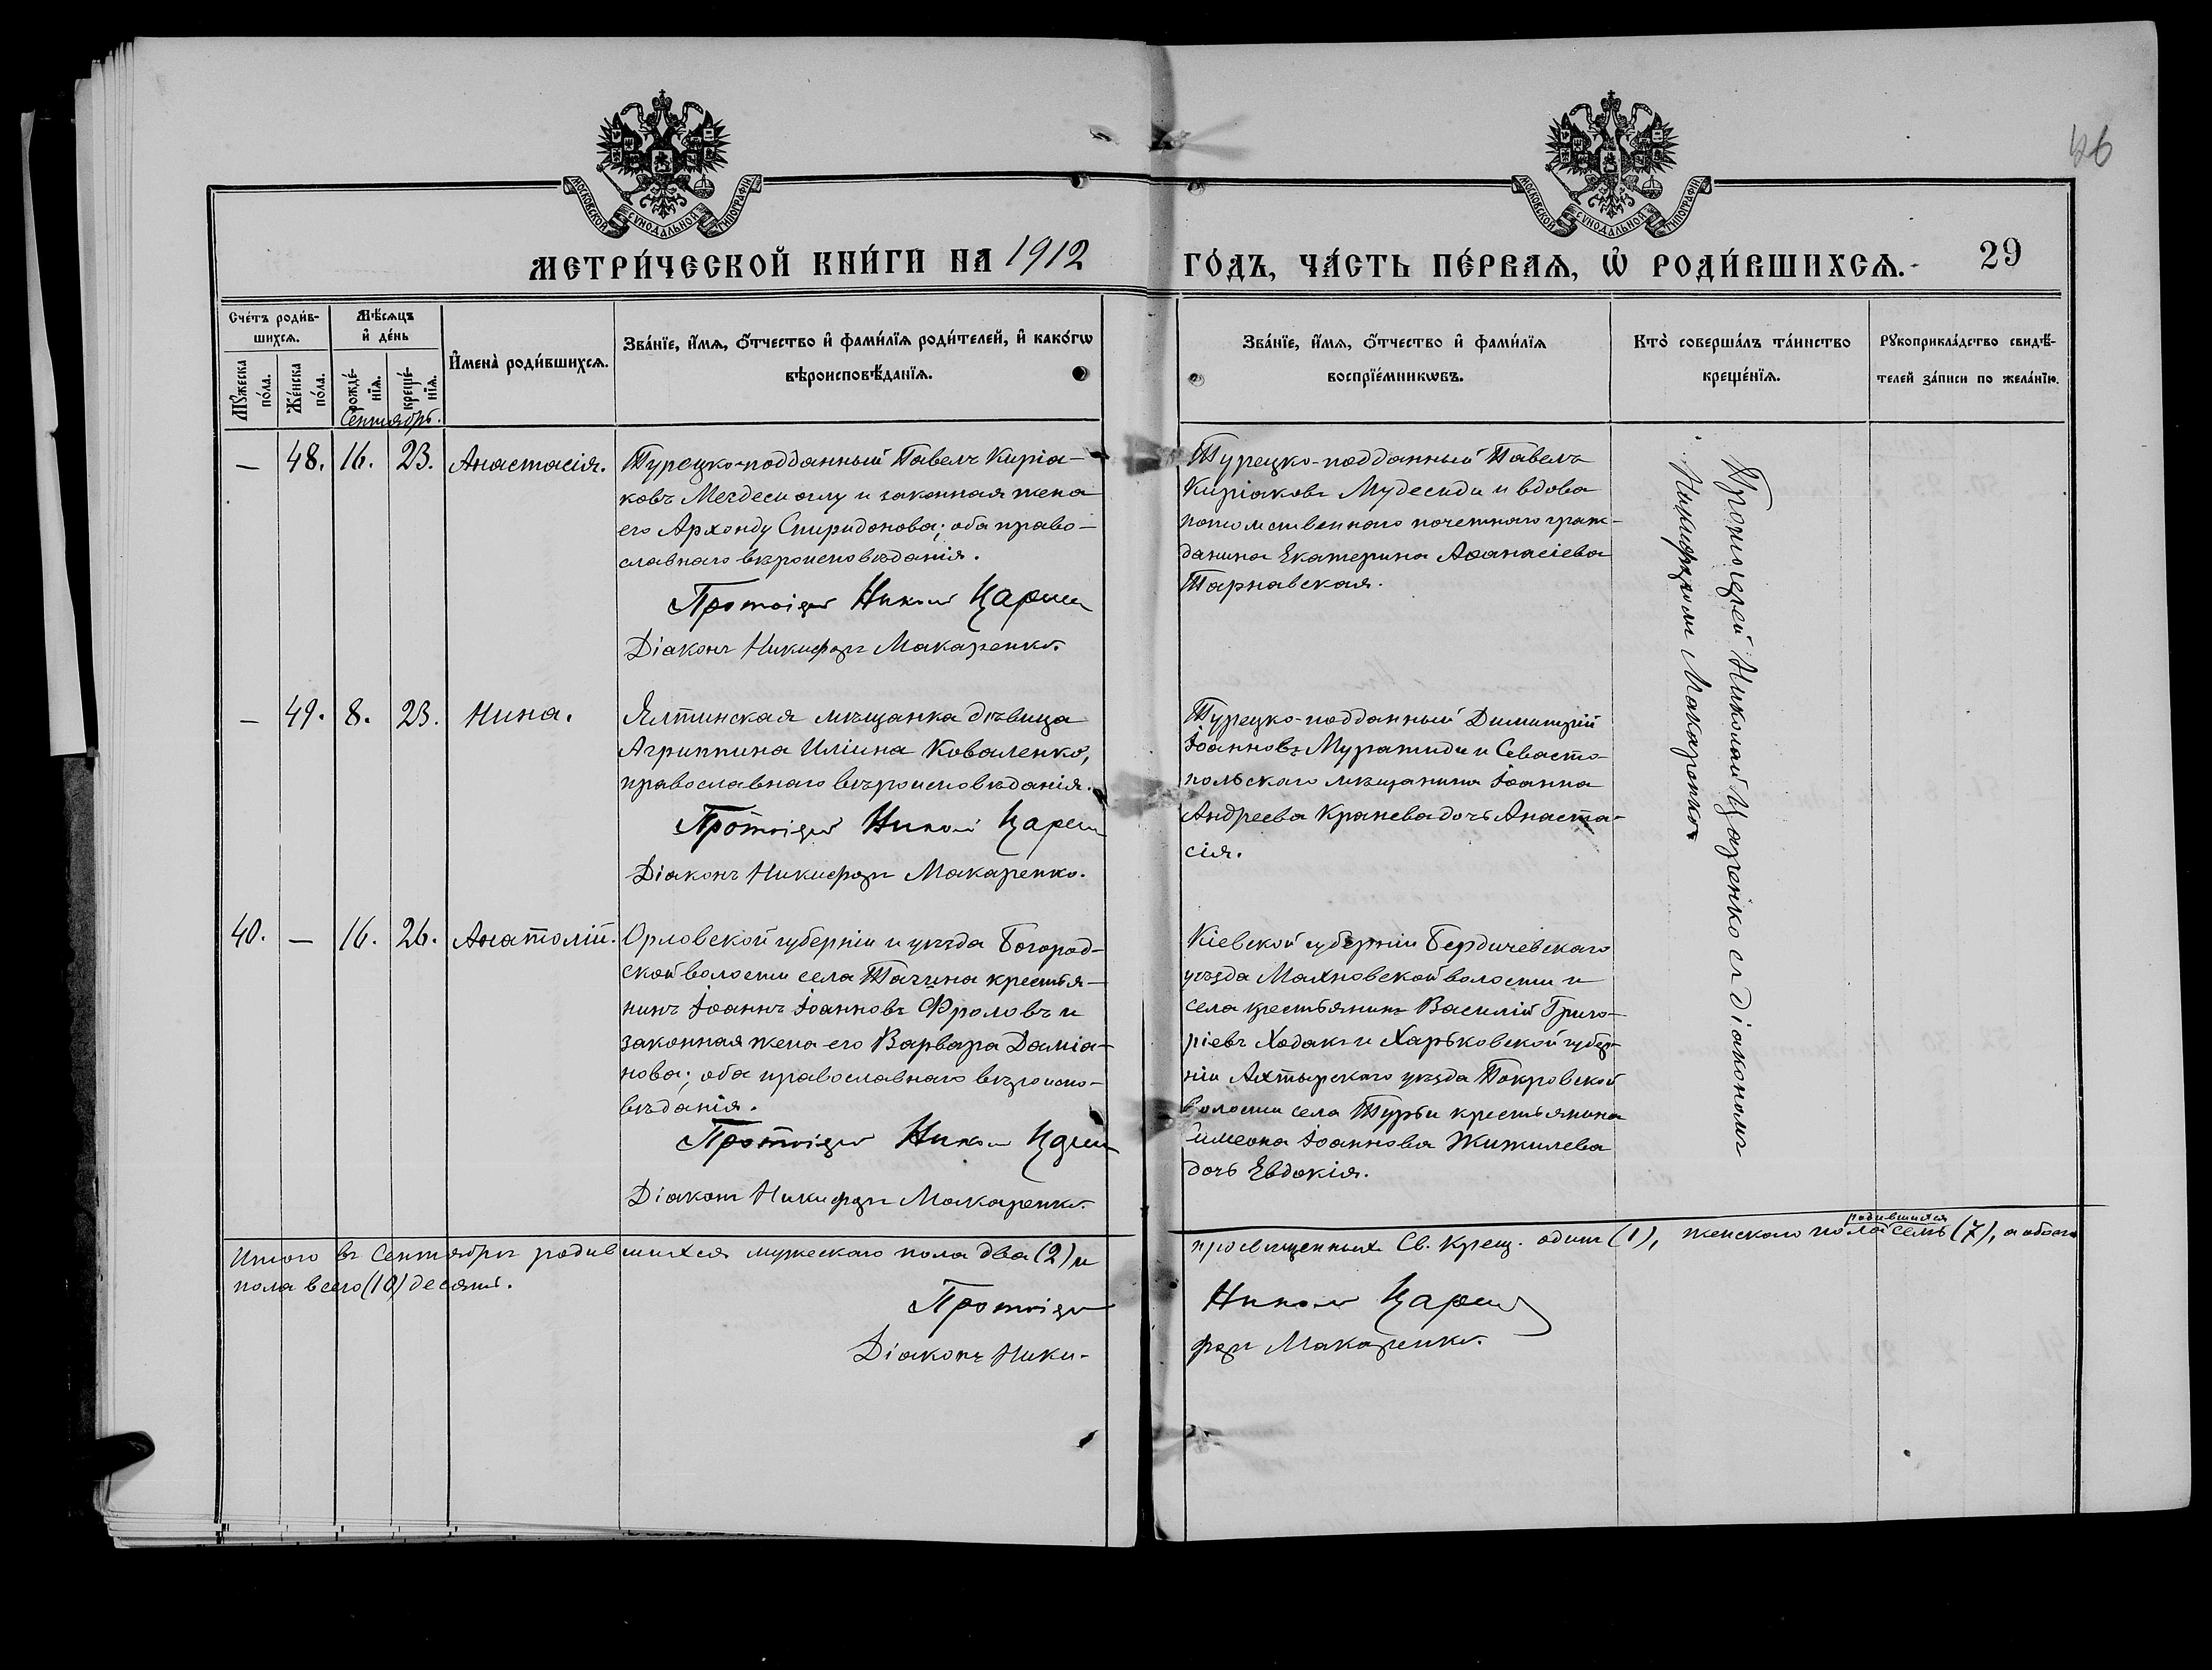 46
МОСКОВСКОЙ СѴНОДАЛЬНОЙ ТИПОГРАФІИ
МОСКОВСКОЙ СѴНОДАЛЬНОЙ ТИПОГРАФІИ
МЕТРИ́ЧЕСКОЙ КНИ́ГИ НА 1912
ГО́ДЪ, ЧА́СТЬ ПЕ́РВАѦ, Ѡ҆ РОДИ́ВШИХСѦ. 29
Сче́тъ роди́в-
шихсѧ.
Мꙋ́жеска по́ла.
Же́нска по́ла.
Мѣ́сѧцъ
и҆ де́нь
рожде́-
нїѧ.
креще́-
нїѧ.
Сентябрь.
И҆мена̀ роди́вшихсѧ.
Зва́нїе, и҆́мѧ, ѻ҆́тчество и҆ фами́лїѧ роди́телей, и҆ како́гѡ
вѣроисповѣ́данїѧ.
Зва́нїе, и҆́мѧ, ѻ҆́тчество и҆ фами́лїѧ
воспрїе́мникѡвъ.
Кто̀ соверша́лъ та́инство
креще́нїѧ.
Рꙋкоприкла́дство свидѣ́-
телей за́писи по жела́нїю.
— 48. 16. 23. Анастасія.
Турецко-подданный Павелъ Киріа-
ковъ Мегдеси оглу и законная жена
его Архонду Спиридонова; оба право-
славнаго вѣроисповѣданія.
Протоіерей Николай Царенко
Діаконъ Никифоръ Макаренко.
Турецко-подданный Павелъ
Киріаковъ Мудесиди и вдова
потомственнаго почетнаго граж-
данина Екатерина Аѳанасіева
Тарнавская.
Протоіерей Николай Царенко съ Діакономъ
Никифоромъ Макаренко
— 49. 8. 23. Нина.
Ялтинская мѣщанка дѣвица
Агриппина Иліина Коваленко,
православнаго вѣроисповѣданія.
Протоіерей Николай Царенко
Діаконъ Никифоръ Макаренко.
Турецко-подданный Димитрій
Іоанновъ Муратиди и Севасто-
польскаго мѣщанина Іоанна
Андреева Кранева дочь Анаста-
сія.
40. — 16. 26. Анатолій.
Орловской губерніи и уѣзда Богород-
ской волости села Тагина крестья-
нинъ Іоаннъ Іоанновъ Фроловъ и
законная жена его Варвара Даміа-
нова; оба православнаго вѣроиспо-
вѣданія.
Протоіерей Николай Царенко
Діаконъ Никифоръ Макаренко.
Кіевской губерніи Бердичевскаго
уѣзда Махновской волости и
села крестьянинъ Василій Григо-
ріевъ Ходакъ и Харьковской губер-
ніи Ахтырскаго уѣзда Покровской
волости села Турьи крестьянина
Симеона Іоаннова Жижилева
дочь Евдокія.
Итого въ Сентябрѣ родившихся мужескаго пола два (2) и просвѣщенныхъ Св. Крещ. одинъ (1), женскаго пола родившихся семь (7), а обоего
пола всего (10) десять.
Протоіерей Николай Царенко
Діаконъ Никифоръ Макаренко.